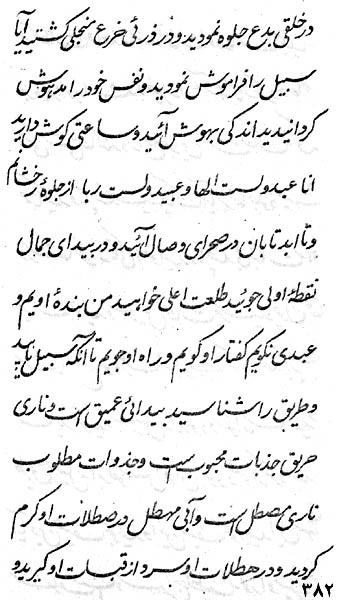 در خلقی بدع جلوه نمودید و در ذرئی خرع منجلی گشتید آیا
سبیل را فراموش نمودید و نفس خود را مدهوش
گردانیدید اندکی بهوش آئید و ساعتی گوش دارید
انا عبد و لست الها و عبید و لست ربا از جلوهٔ رخشانم
و تا ابد تابان در صحرای وصال آئید و در بیدای جمال
نقطهٔ اولی جوئید طلعت اعلی خواهید من بندهٔ اویم و
عبدی نکویم گفتار او گویم و راه او جویم تا آنکه سبیل یابید
و طریق را شناسید بیدائی عمیق است و ناری
حریق جذبات محبوب است و جذوات مطلوب
ناری مصطل است و آبی مهطل در صطلات او گرم
گردید و در هطلات او سرد از قبسات او گیرید و
۳۸۲